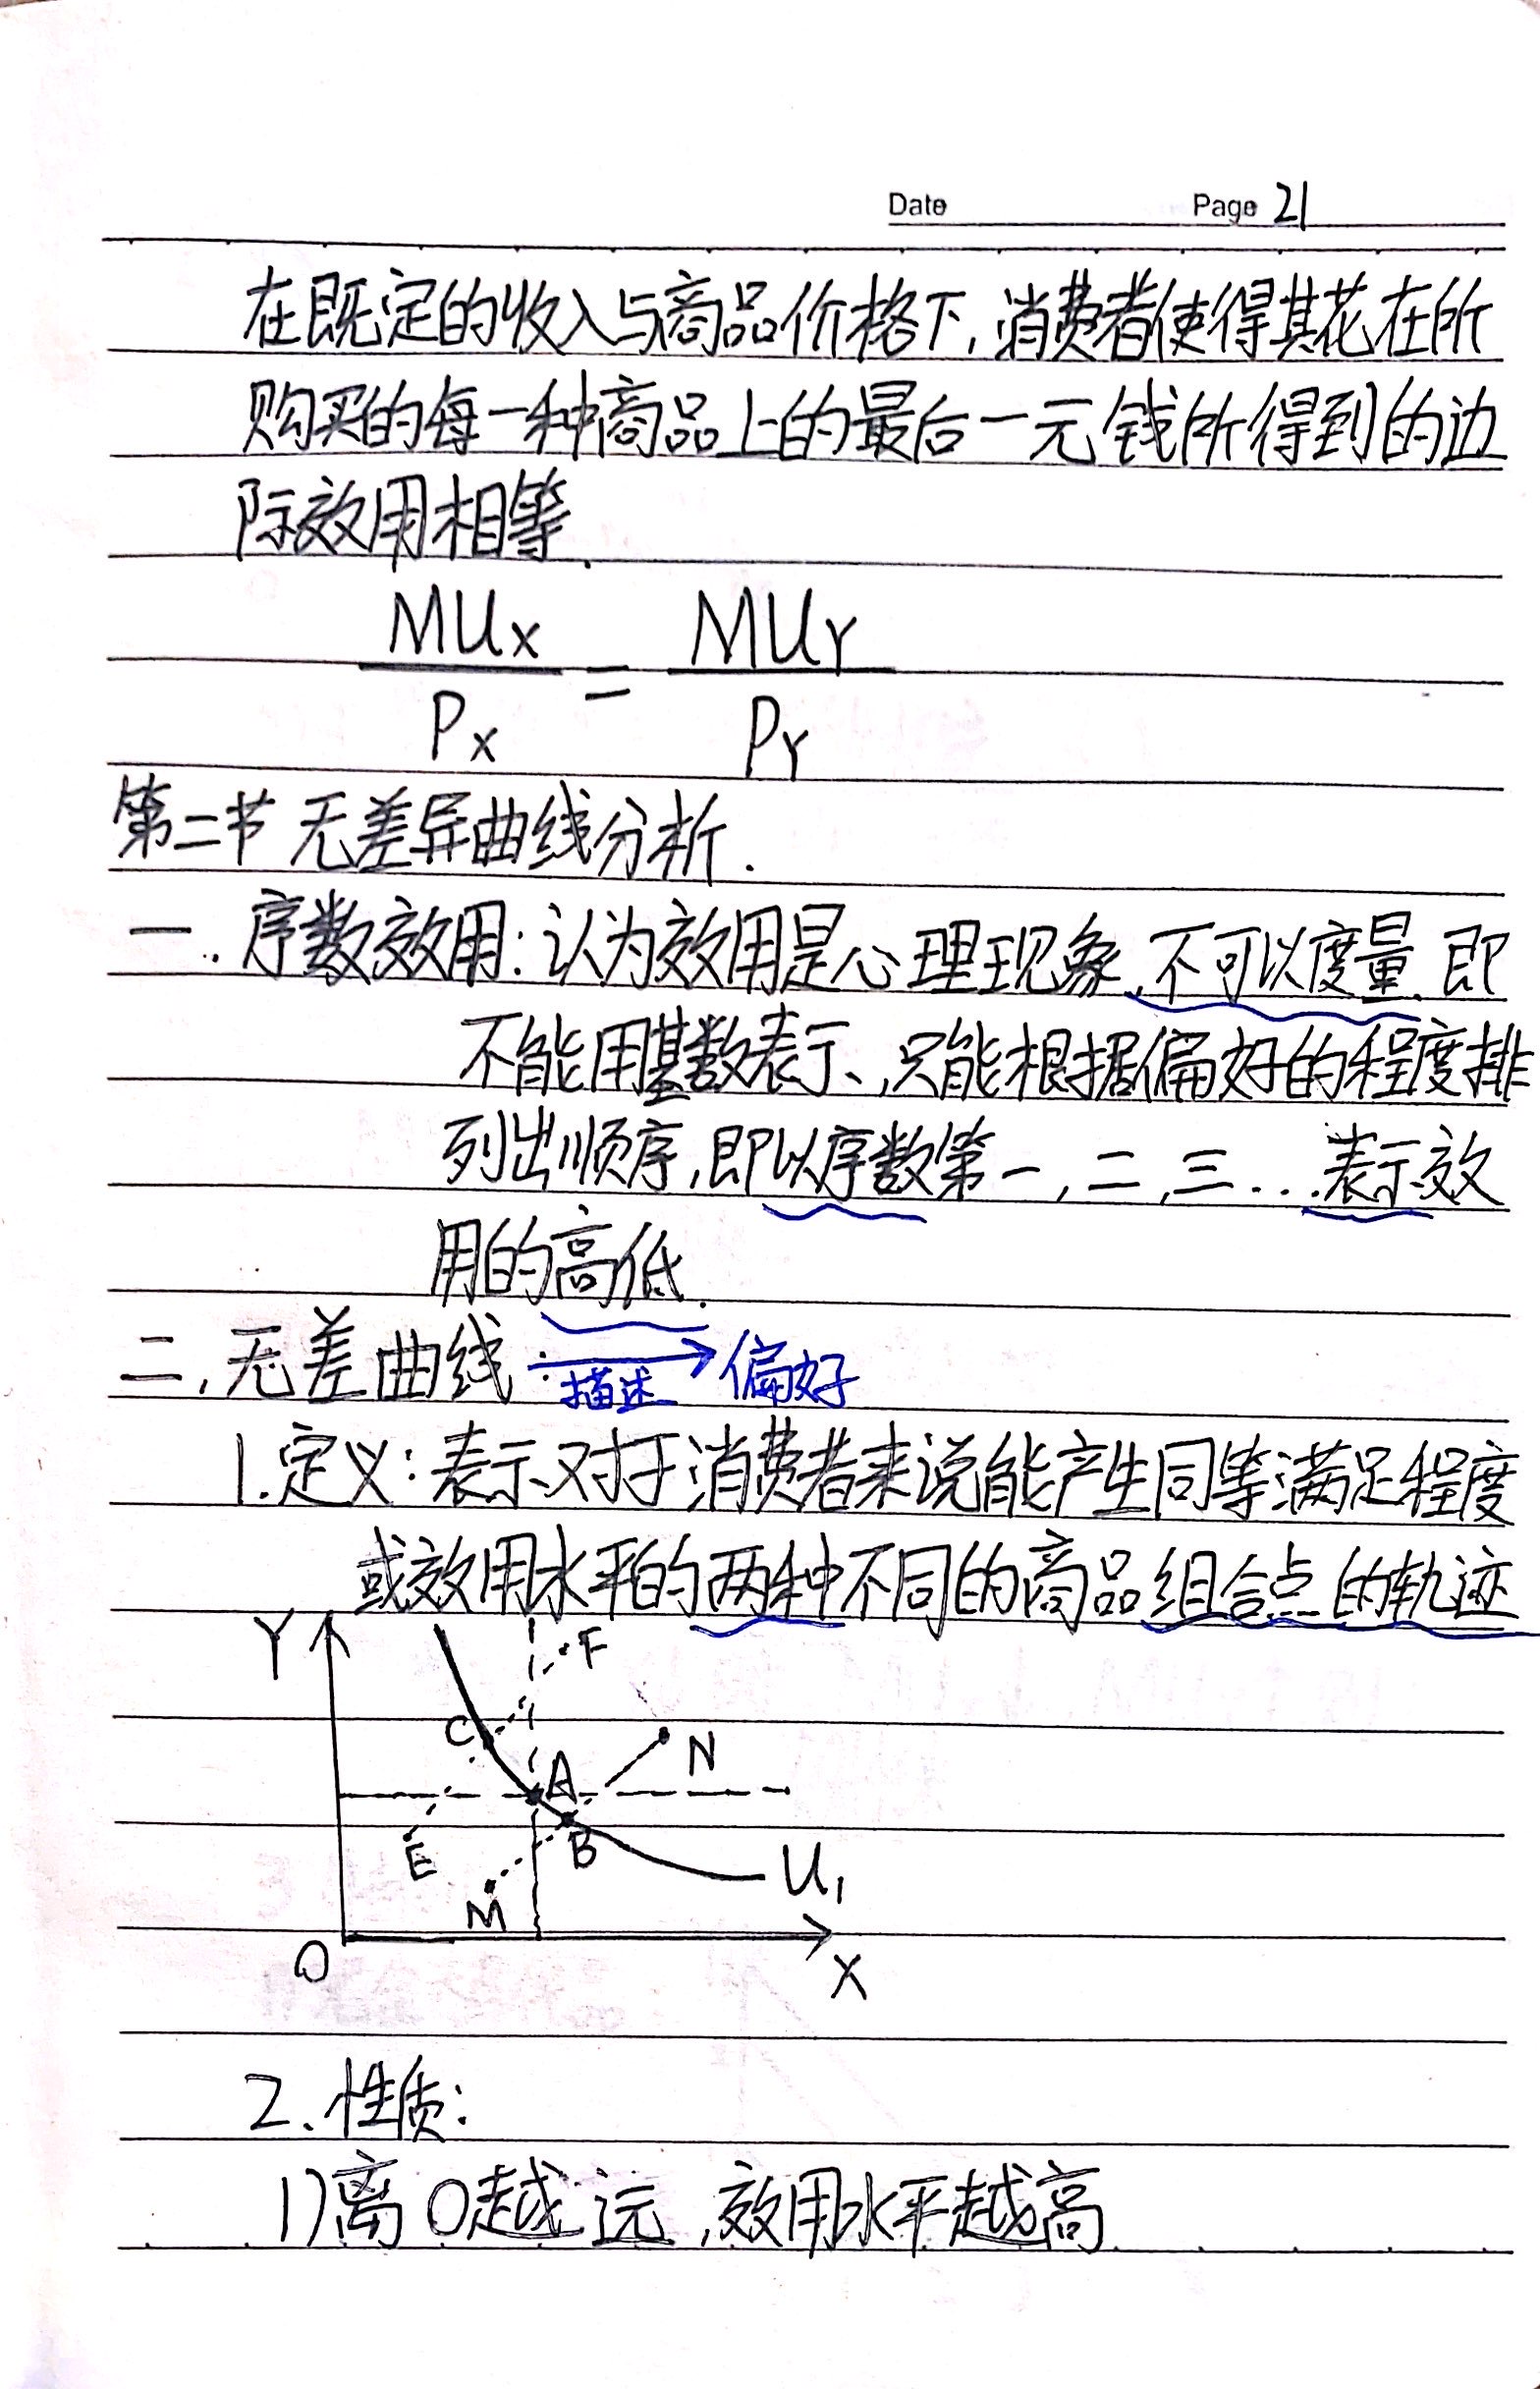 Date Page 21
在既定的收入与商品价格下,消费者使得其花在所
购买的每一种商品上的最后一元钱所得到的边
际效用相等.
MUx / Px = MUY / PY
第二节 无差异曲线分析.
一.序数效用:认为效用是心理现象,不可以度量,即
不能用基数表示,只能根据偏好的程度排
列出顺序,即以序数第一,二,三...表示效
用的高低.
二,无差曲线: 描述 → 偏好
1.定义:表示对于消费者来说能产生同等满足程度
或效用水平的两种不同的商品组合点的轨迹
Y F
C A N
E B
M U1
O X
2.性质:
1)离O越远,效用水平越高